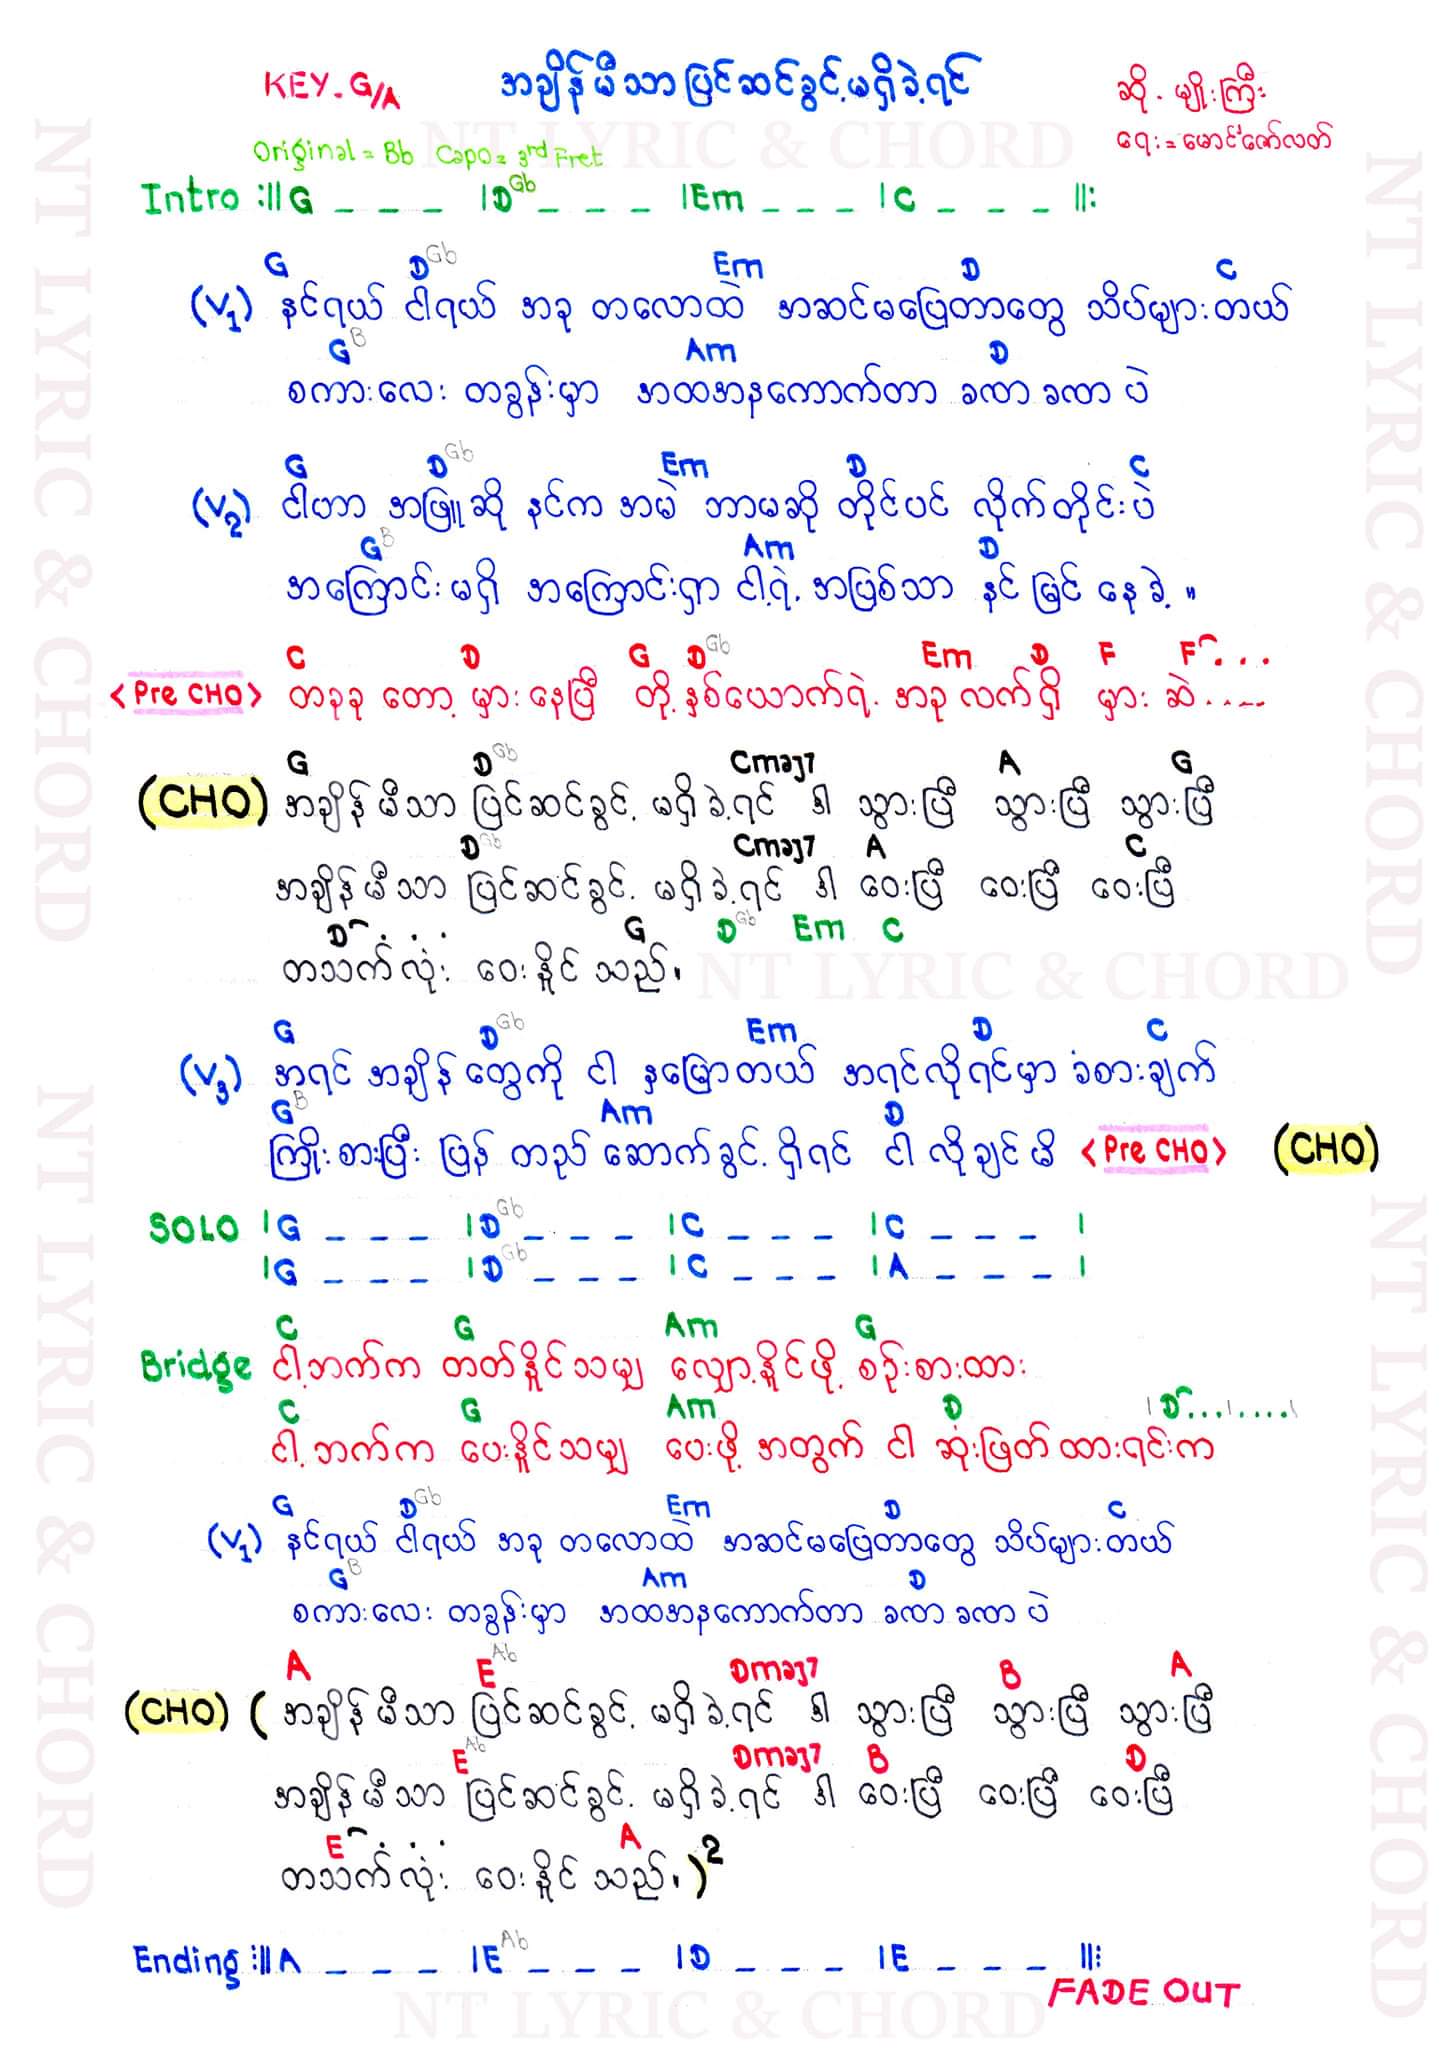 KEY-G/A အချိန်မီသာပြင်ဆင်ခွင့်မရှိခဲ့ရင် ဆို-မျိုးကြီး
Original = Bb Capo = 3rd Fret ရေး=မောင်ဇော်လတ်
Intro :|| G _ _ _ |D Gb _ _ _ |Em _ _ _ |C _ _ _ ||:
G D Gb Em D C
(V1) နင်ရယ် ငါရယ် အခု တလောထဲ အဆင်မပြေတာတွေ သိပ်များတယ်
G B Am D
စကားလေး တခွန်းမှာ အထအနကောက်တာ ခဏ ခဏ ပဲ
G D Gb Em D C
(V2) ငါဟာ အဖြူဆို နင်က အမဲ ဘာမဆို တိုင်ပင် လိုက်တိုင်းပဲ
G B Am D
အကြောင်းမရှိ အကြောင်းရှာ ငါ့ရဲ့ အပြစ်သာ နင် မြင် နေခဲ့ ။
C D G D Gb Em D F F . . .
<Pre CHO> တခုခု တော့ မှားနေပြီ တို့နှစ်ယောက်ရဲ့ အခု လက်ရှိ မှား ဆဲ.....
G D Gb Cmaj7 A G
(CHO) အချိန်မီသာ ပြင်ဆင်ခွင့် မရှိခဲ့ရင် ဒါ သွားပြီ သွားပြီ သွားပြီ
D Gb Cmaj7 A C
အချိန်မီသာ ပြင်ဆင်ခွင့် မရှိခဲ့ရင် ဒါ ဝေးပြီ ဝေးပြီ ဝေးပြီ
D . . . G D Gb Em C
တသက်လုံး ဝေးနိူင် သည်။
G D Gb Em D C
(V3) အရင် အချိန်တွေကို ငါ နှမြောတယ် အရင်လိုရင်မှာ ခံစားချက်
G B Am D
ကြိုးစားပြီး ပြန် တည် ဆောက်ခွင့် ရှိရင် ငါ လိုချင်မိ <Pre CHO> (CHO)
SOLO |G _ _ _ |D Gb _ _ _ |C _ _ _ |C _ _ _ |
|G _ _ _ |D Gb _ _ _ |C _ _ _ |A _ _ _ |
C G Am G
Bridge ငါ့ဘက်က တတ်နိူင်သမျှ လျှော့နိူင်ဖို့ စဉ်းစားထား
C G Am D |D...|....|
ငါ့ဘက်က ပေးနိူင်သမျှ ပေးဖို့ အတွက် ငါ ဆုံးဖြတ်ထားရင်းက
G D Gb Em D C
(V1) နင်ရယ် ငါရယ် အခု တလောထဲ အဆင်မပြေတာတွေ သိပ်များတယ်
G B Am D
စကားလေး တခွန်းမှာ အထအနကောက်တာ ခဏ ခဏ ပဲ
A E Ab Dmaj7 B A
(CHO) ( အချိန်မီသာ ပြင်ဆင်ခွင့် မရှိခဲ့ရင် ဒါ သွားပြီ သွားပြီ သွားပြီ
E Ab Dmaj7 B D
အချိန်မီသာ ပြင်ဆင်ခွင့် မရှိခဲ့ရင် ဒါ ဝေးပြီ ဝေးပြီ ဝေးပြီ
E . . . A
တသက်လုံး ဝေးနိူင် သည်။ )2
Ending :|| A _ _ _ |E Ab _ _ _ |D _ _ _ |E _ _ _ ||:
FADE OUT
NT LYRIC & CHORD
NT LYRIC & CHORD
NT LYRIC & CHORD
NT LYRIC & CHORD
NT LYRIC & CHORD
NT LYRIC & CHORD
NT LYRIC & CHORD